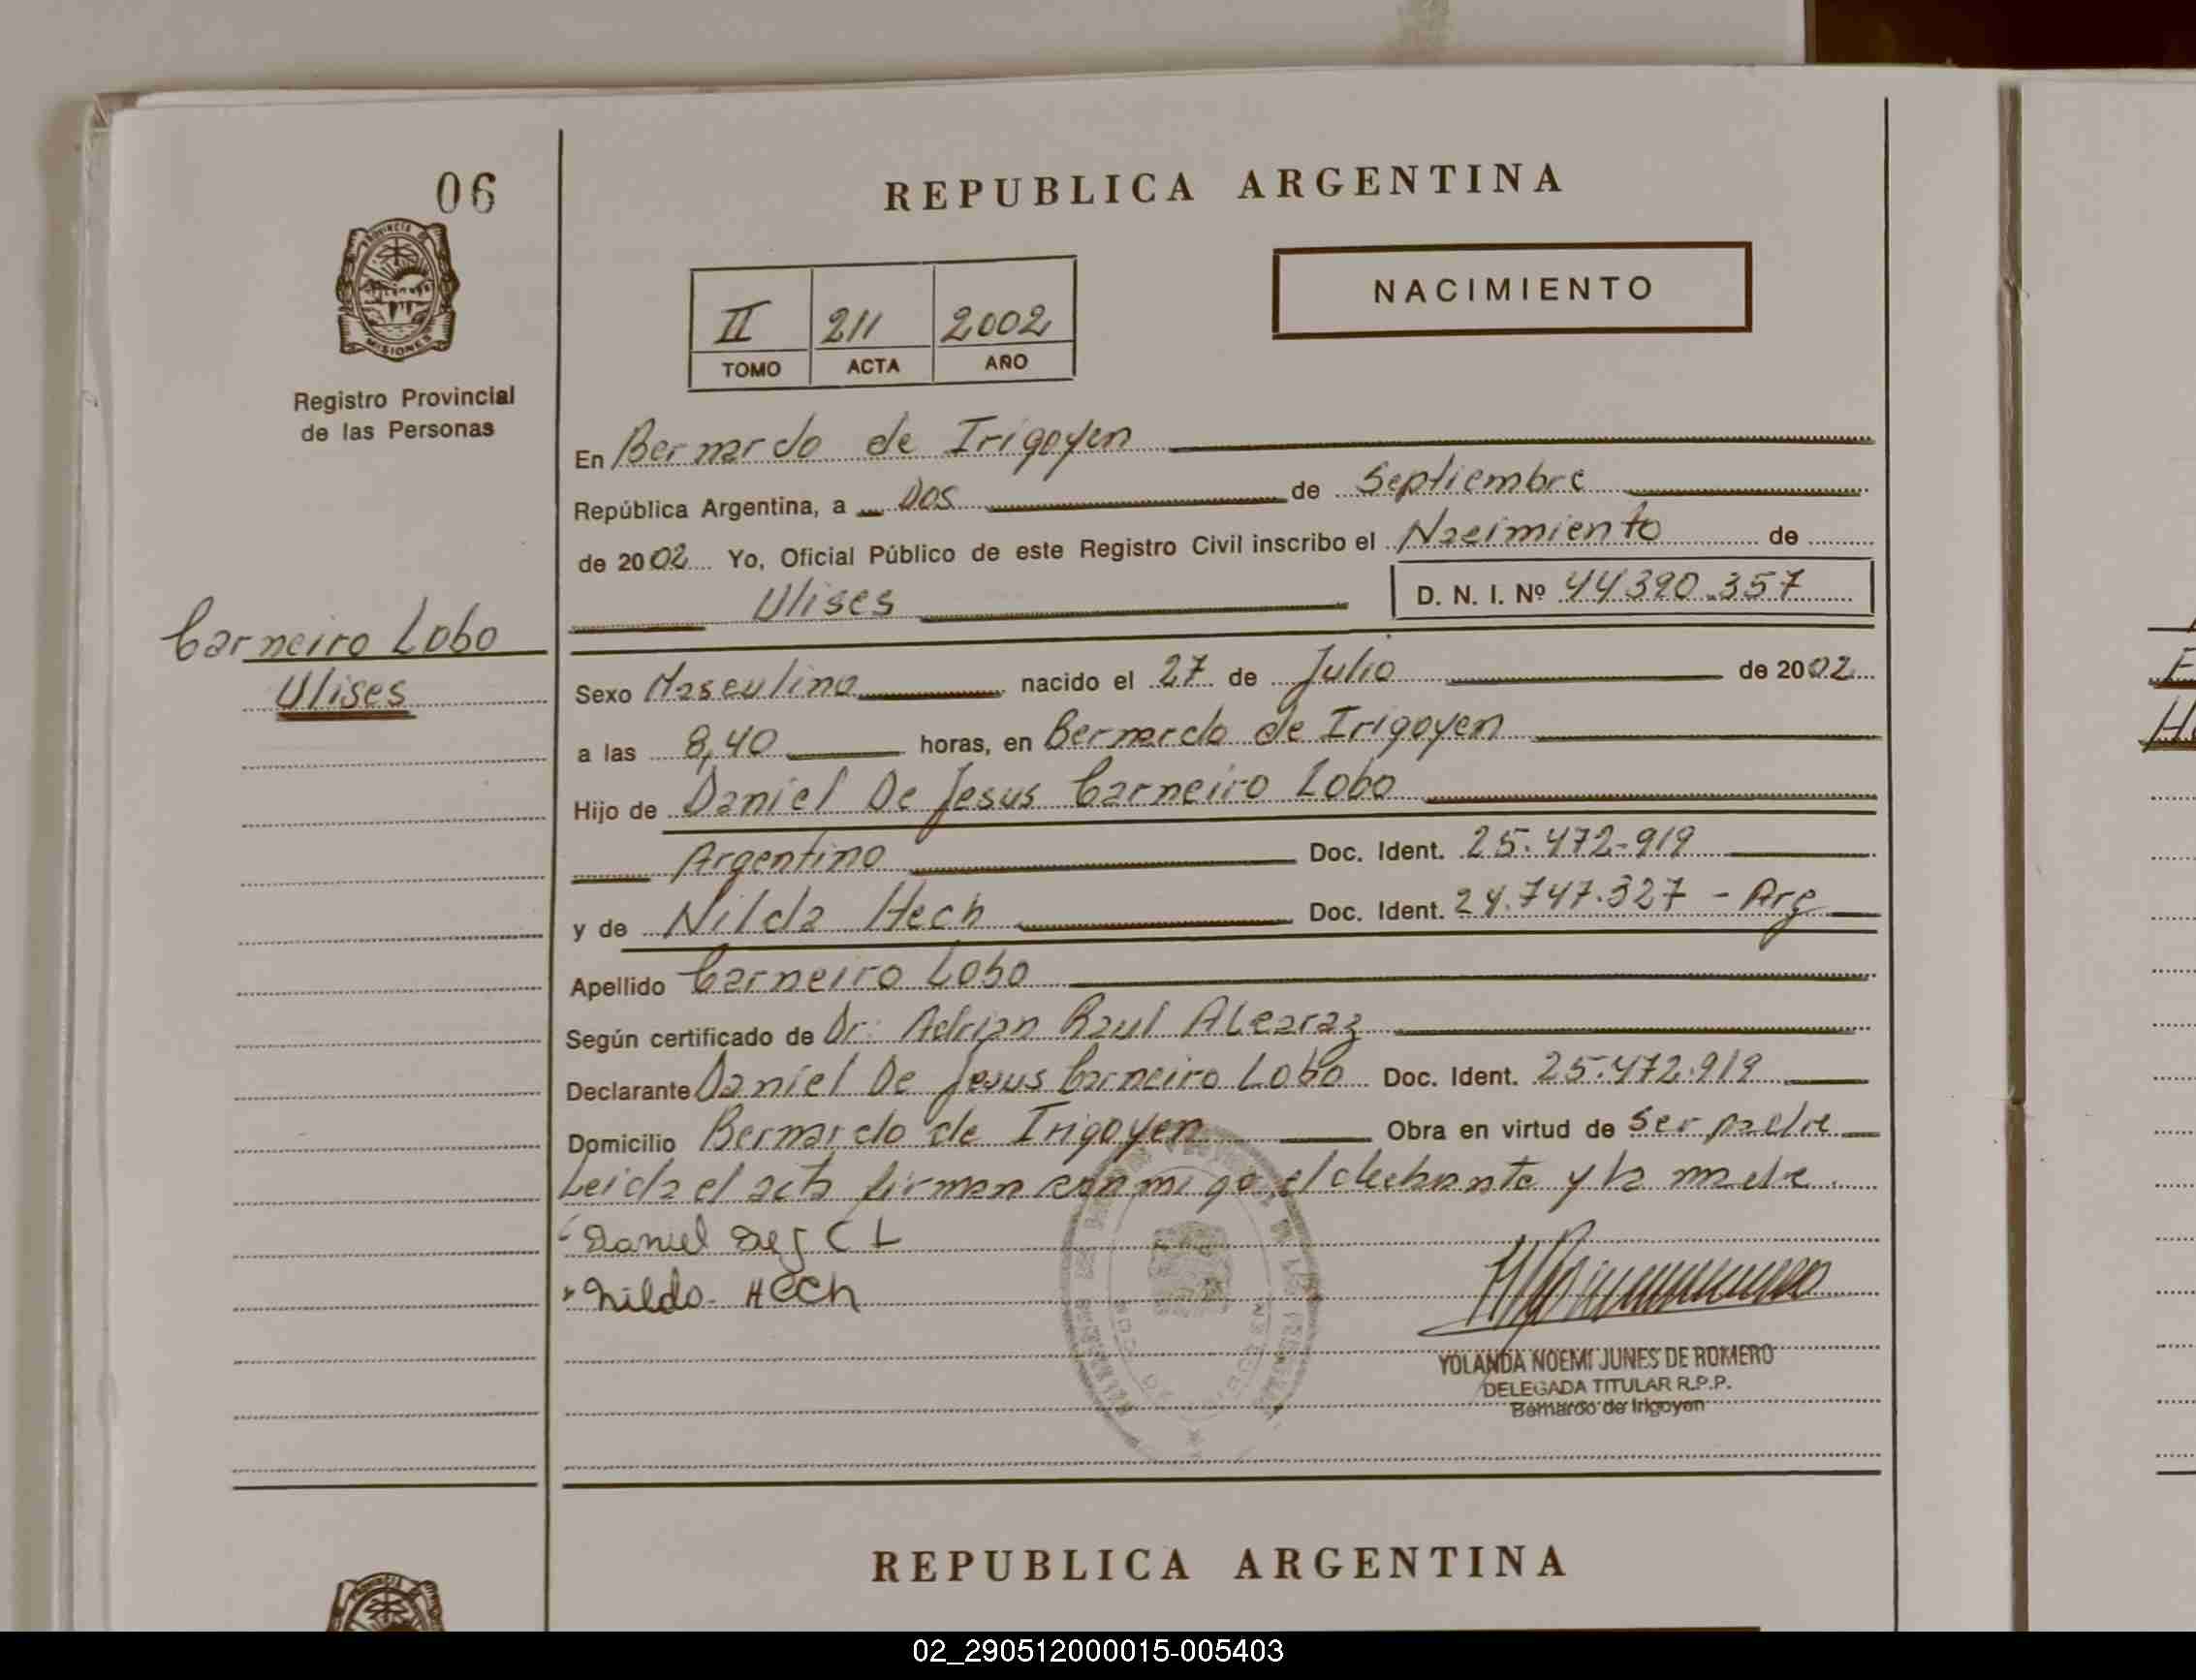 06
REPUBLICA ARGENTINA
PROVINCIA DE
MISIONES
NACIMIENTO
II 211 2002
TOMO ACTA AÑO
Registro Provincial
de las Personas
En Bernardo de Irigoyen
República Argentina, a Dos de Septiembre
de 2002 Yo, Oficial Público de este Registro Civil inscribo el Nacimiento de
Ulises D. N. I. Nº 44390.357
Carneiro Lobo
Ulises
Sexo Masculino nacido el 27 de Julio de 2002
a las 8,40 horas, en Bernardo de Irigoyen
Hijo de Daniel De Jesus Carneiro Lobo
Argentino Doc. Ident. 25.472.919
y de Nilda Hech Doc. Ident. 24.747.327 - Arg
Apellido Carneiro Lobo
Según certificado de Dr. Adrian Raul Alcaraz
Declarante Daniel De Jesus Carneiro Lobo Doc. Ident. 25.472.919
Domicilio Bernardo de Irigoyen Obra en virtud de ser padre
Leida el acta firman conmigo el declarante y la madre.
Daniel De J C L
Nilda Hech
YOLANDA NOEMI JUNES DE ROMERO
DELEGADA TITULAR R.P.P.
Bernardo de Irigoyen
REPUBLICA ARGENTINA
02_290512000015-005403